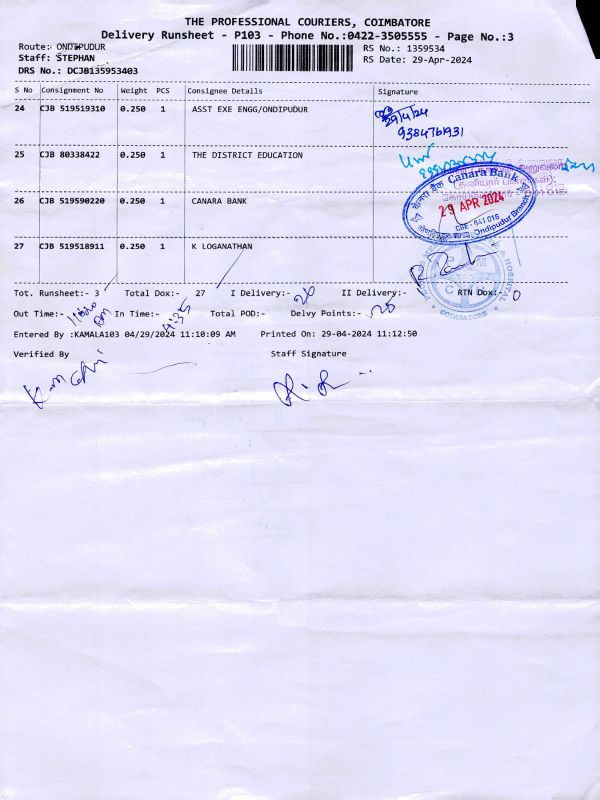 THE PROFESSIONAL COURIERS, COIMBATORE
Delivery Runsheet - P103 - Phone No.:0422-3505555 - Page No.:3
Route: ONDIPUDUR
RS No.: 1359534
Staff: STEPHAN
RS Date: 29-Apr-2024
DRS No.: DCJB135953403
S No Consignment No Weight PCS Consignee Details Signature
24 CJB 519519310 0.250 1 ASST EXE ENGG/ONDIPUDUR
29/4/24
9384761931
25 CJB 80338422 0.250 1 THE DISTRICT EDUCATION
26 CJB 519590220 0.250 1 CANARA BANK
केनरा बैंक Canara Bank
29 APR 2024
CBE - 641 016
Ondipudur Branch
27 CJB 518518911 0.250 1 K LOGANATHAN
HOSPITAL
COIMBATORE
Tot. Runsheet:- 3 Total Dox:- 27 I Delivery:- 26 II Delivery:- RTN Dox:- 0
Out Time:- In Time:- 4:35 Total POD:- Delvy Points:- 25
Entered By :KAMALA103 04/29/2024 11:10:09 AM Printed On: 29-04-2024 11:12:50
Verified By Staff Signature